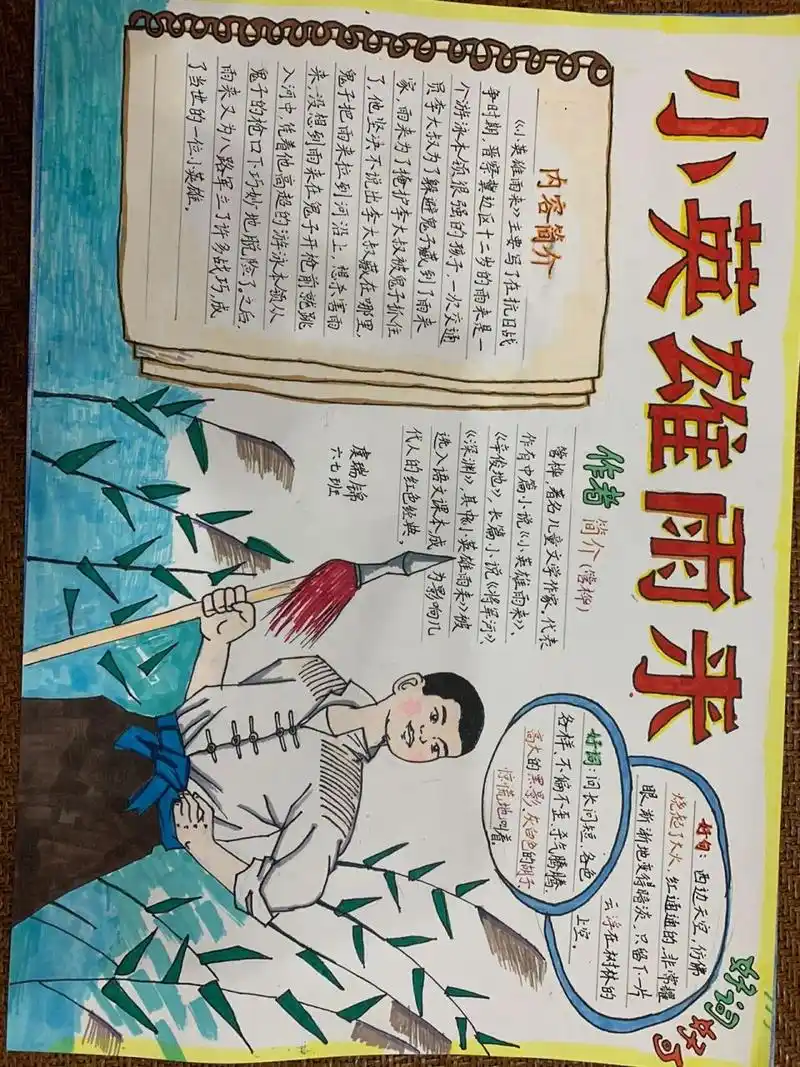 小英雄雨来
内容简介
《小英雄雨来》主要写了在抗日战
争时期,晋察冀边区十二岁的雨来是一
个游泳本领很强的孩子,一次交通
员李大叔为了躲避鬼子藏到了雨来
家,雨来为了掩护李大叔被鬼子抓住
了,他坚决不说出李大叔藏在哪里,
鬼子把雨来拉到河沿上,想杀害雨
来,没想到雨来在鬼子开枪前就跳
入河中,凭着他高超的游泳本领从
鬼子的枪口下巧妙地脱险了。之后
雨来又为八路军立了许多战巧,成
了当世的一位小英雄。
作者简介(管桦)
管桦,著名儿童文学作家、代表
作有中篇小说《小英雄雨来》、
《辛俊地》,长篇小说《将军河》、
《深渊》其中《小英雄雨来》被
选入语文课本,成为影响几
代人的红色经典。
虞瑞锦
六七班
好词好句
好词:问长问短、各色
各样、不偏不歪、杀气腾腾、
高大的黑影、灰白色的胡子、
惊慌地四看。
好句:西边天空,仿佛
烧起了大火,红通通的,非常耀
眼,渐渐地变得暗淡,只留下一片
云浮在树林的
上空。